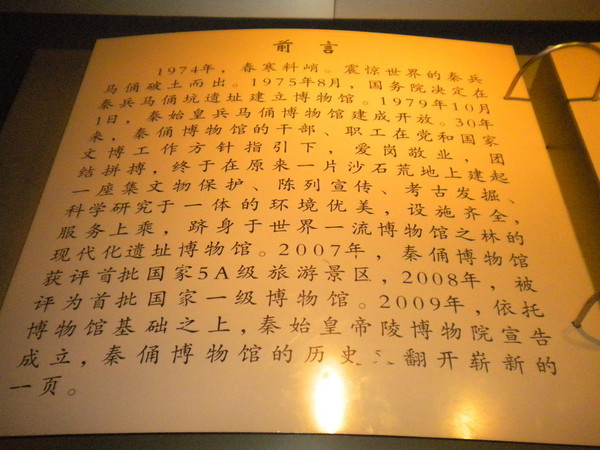 前言
1974年，春寒料峭。震惊世界的秦兵
马俑破土而出。1975年8月，国务院决定在
秦兵马俑坑遗址建立博物馆。1979年10月
1日，秦始皇兵马俑博物馆建成开放。30年
来，秦俑博物馆的干部、职工在党和国家
文博工作方针指引下，爱岗敬业，团
结拼搏，终于在原来一片沙石荒地上建起
一座集文物保护、陈列宣传、考古发掘、
科学研究于一体的环境优美，设施齐全，
服务上乘，跻身于世界一流博物馆之林的
现代化遗址博物馆。2007年，秦俑博物馆
获评首批国家5A级旅游景区，2008年，被
评为首批国家一级博物馆。2009年，依托
博物馆基础之上，秦始皇帝陵博物院宣告
成立，秦俑博物馆的历史翻开崭新的
一页。